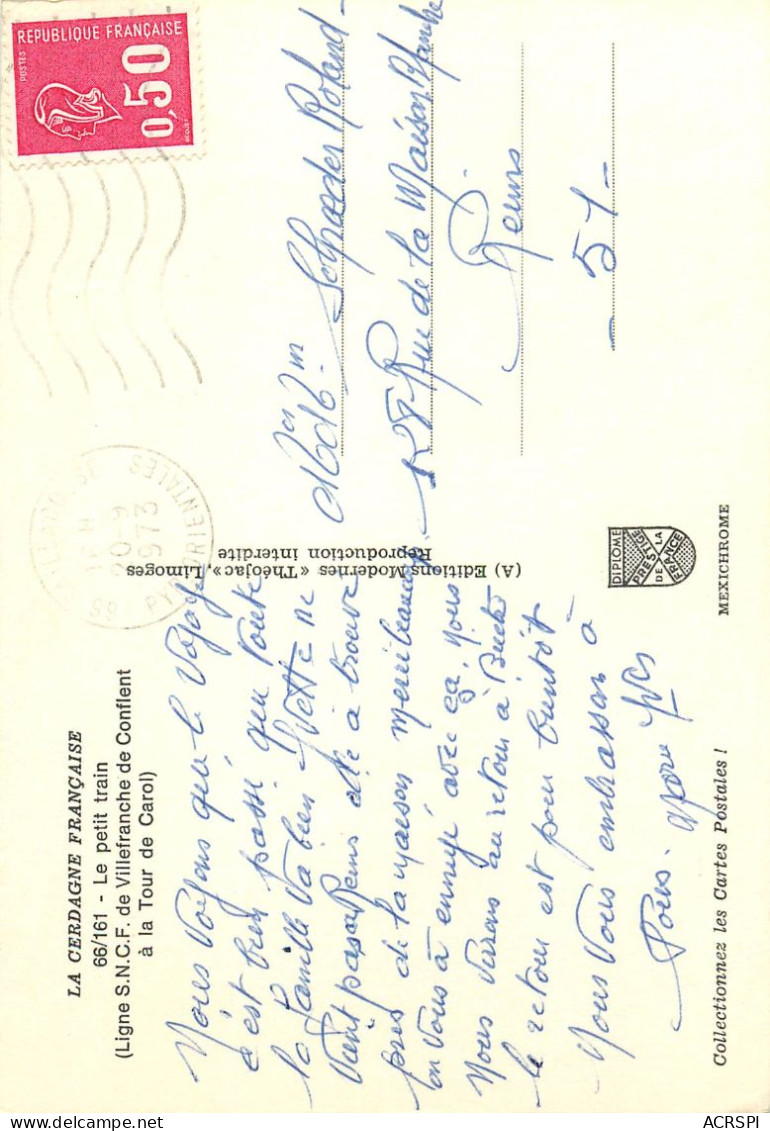 LA CERDAGNE FRANÇAISE
66/161 - Le petit train
(Ligne S.N.C.F. de Villefranche de Conflent
à la Tour de Carol)
Nous Voyons que le Voyage
c'est bien passé que toute
la famille va bien Yvette ne
Vient pas a Reims elle à trouvé
près de la maison merci beaucoup
on Vous à ennuyé avec ça, Nous
Nous verrons au retour à
le retour est pour bientôt
Nous Vous embrassons à
Tous.
(A) Editions Modernes « Théojac », Limoges
Reproduction interdite
RÉPUBLIQUE FRANÇAISE
POSTES
0,50
16 H
20-9
1973
PYR ORIENTALES
Roland
Rue de la Maison Blanche
Reims
- 51 -
DIPLOME
PRESTIGE
DE LA
FRANCE
MEXICHROME
Collectionnez les Cartes Postales !
ACRSPI